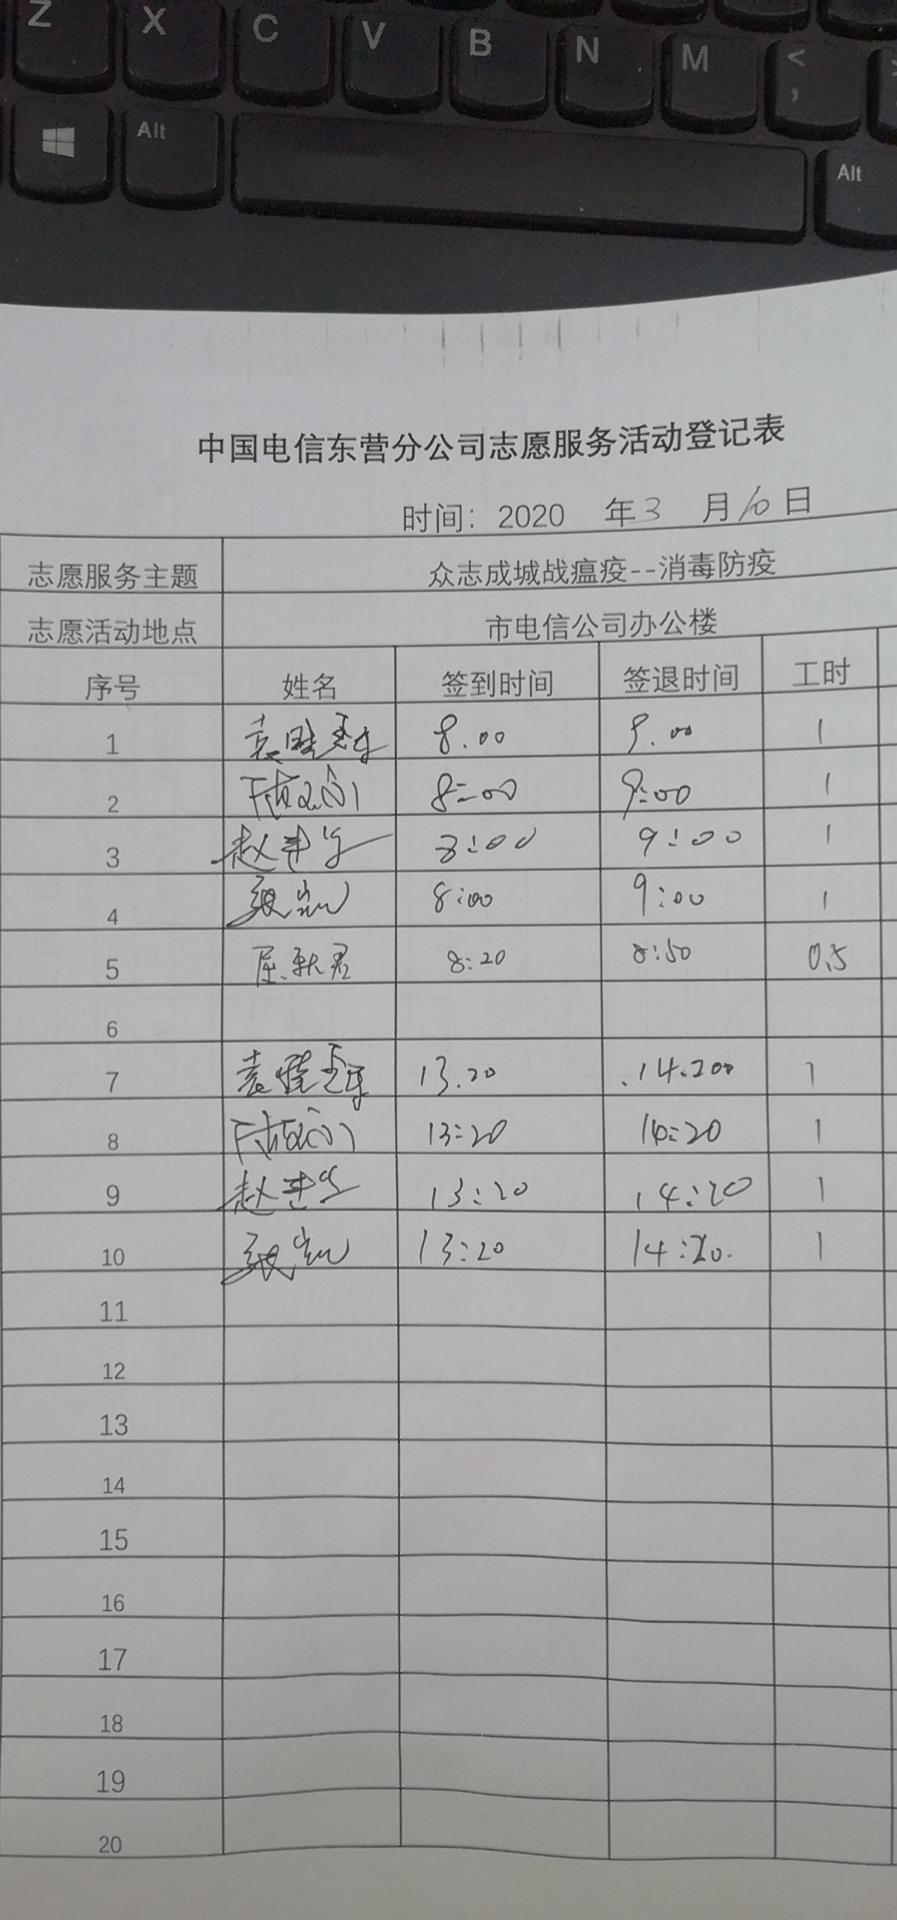 Z X C V B N M <
,
Alt Alt
中国电信东营分公司志愿服务活动登记表
时间：2020 年3 月10日
志愿服务主题 众志成城战瘟疫--消毒防疫
志愿活动地点 市电信公司办公楼
序号 姓名 签到时间 签退时间 工时
1 8.00 9.00 1
2 8:00 9:00 1
3 赵 8:00 9:00 1
4 8:00 9:00 1
5 屈 8:20 8:50 0.5
6
7 13.20 1
8 13:20 14:20 1
9 赵 13:20 14:20 1
10 13:20 14:20. 1
11
12
13
14
15
16
17
18
19
20